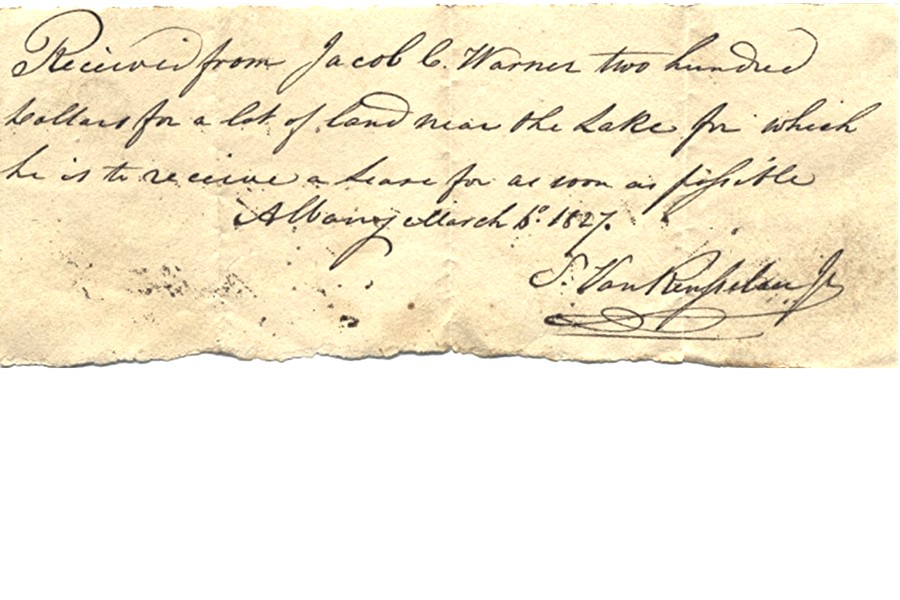 Received from Jacob C. Warner two hundred
Dollars for a lot of land near the Lake for which
he is to receive a Lease for as soon as possible
Albany March 1827.
S. Van Rensselaer Jr